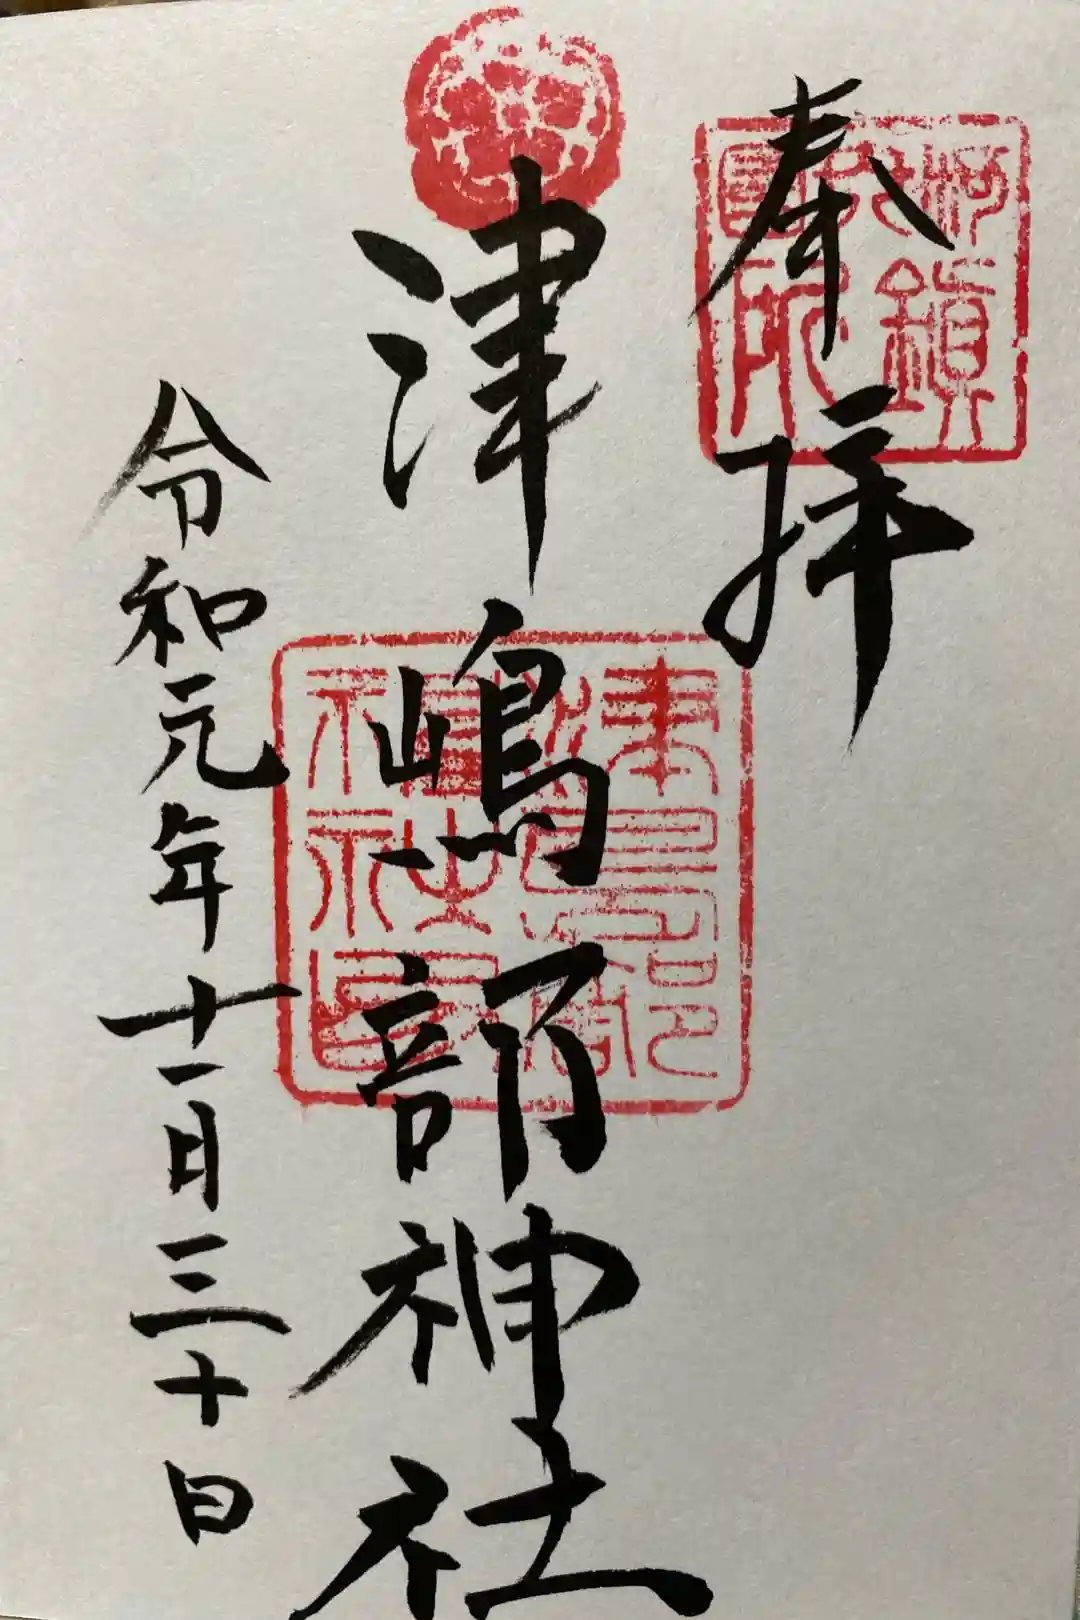 奉拝
津嶋部神社
令和元年十一月三十日